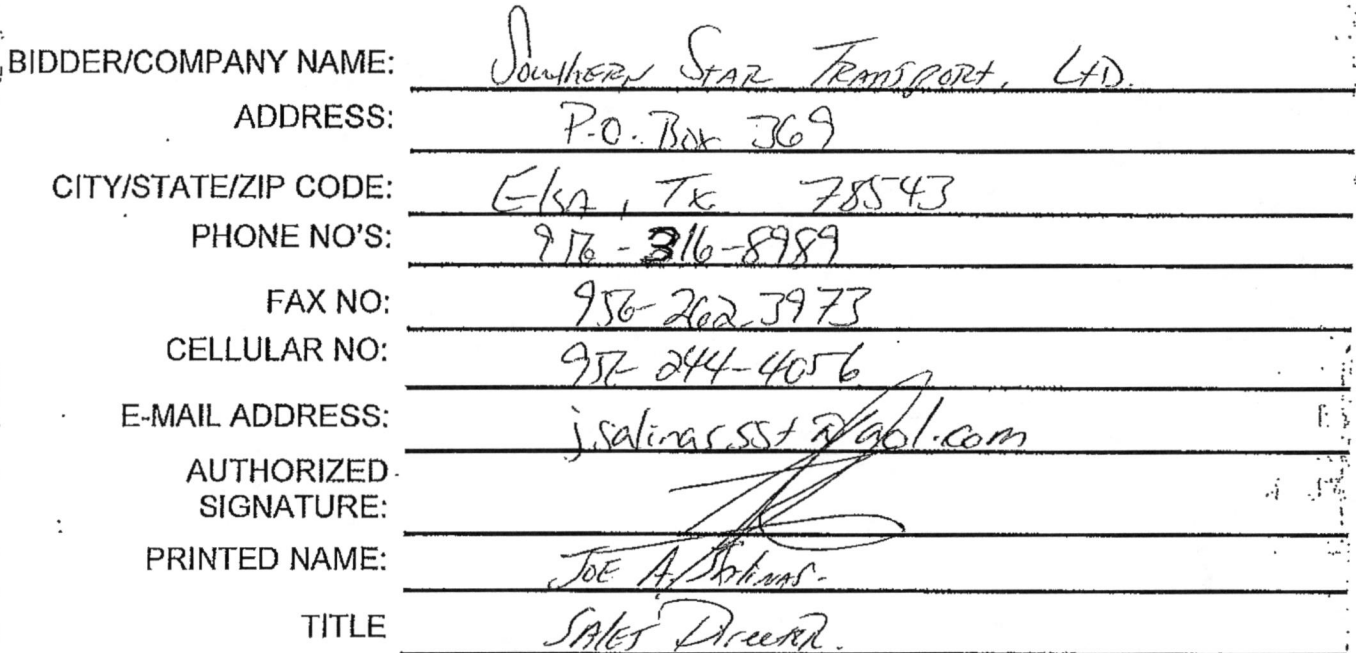 BIDDER/COMPANY NAME: Southern Star Transport, Ltd.
ADDRESS: P.O. Box 369
CITY/STATE/ZIP CODE: Elsa, Tx 78543
PHONE NO'S: 956-316-8989
FAX NO: 956-262-3973
CELLULAR NO: 956-244-4056
E-MAIL ADDRESS: jsalinassst@aol.com
AUTHORIZED
SIGNATURE:
PRINTED NAME: JOE A. Salinas
TITLE SAles Director.